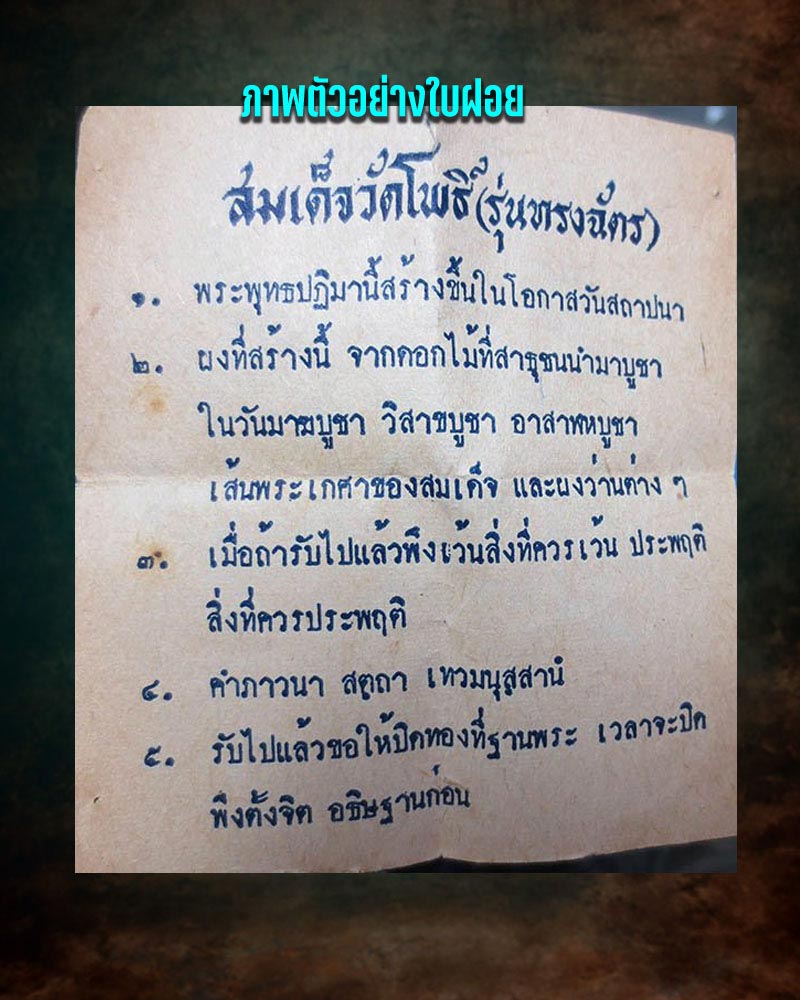 ภาพตัวอย่างใบฝอย
สมเด็จวัดโพธิ์ (รุ่นทรงฉัตร)
๑. พระพุทธปฏิมานี้สร้างขึ้นในโอกาสวันสถาปนา
๒. ผงที่สร้างนี้ จากดอกไม้ที่สาธุชนนำมาบูชา
ในวันมาฆบูชา วิสาขบูชา อาสาฬหบูชา
เส้นพระเกศาของสมเด็จ และผงว่านต่าง ๆ
๓. เมื่อถ้ารับไปแล้วพึงเว้นสิ่งที่ควรเว้น ประพฤติ
สิ่งที่ควรประพฤติ
๔. คำภาวนา สตฺถา เทวมนุสฺสานํ
๕. รับไปแล้วขอให้ปิดทองที่ฐานพระ เวลาจะปิด
พึงตั้งจิต อธิษฐานก่อน